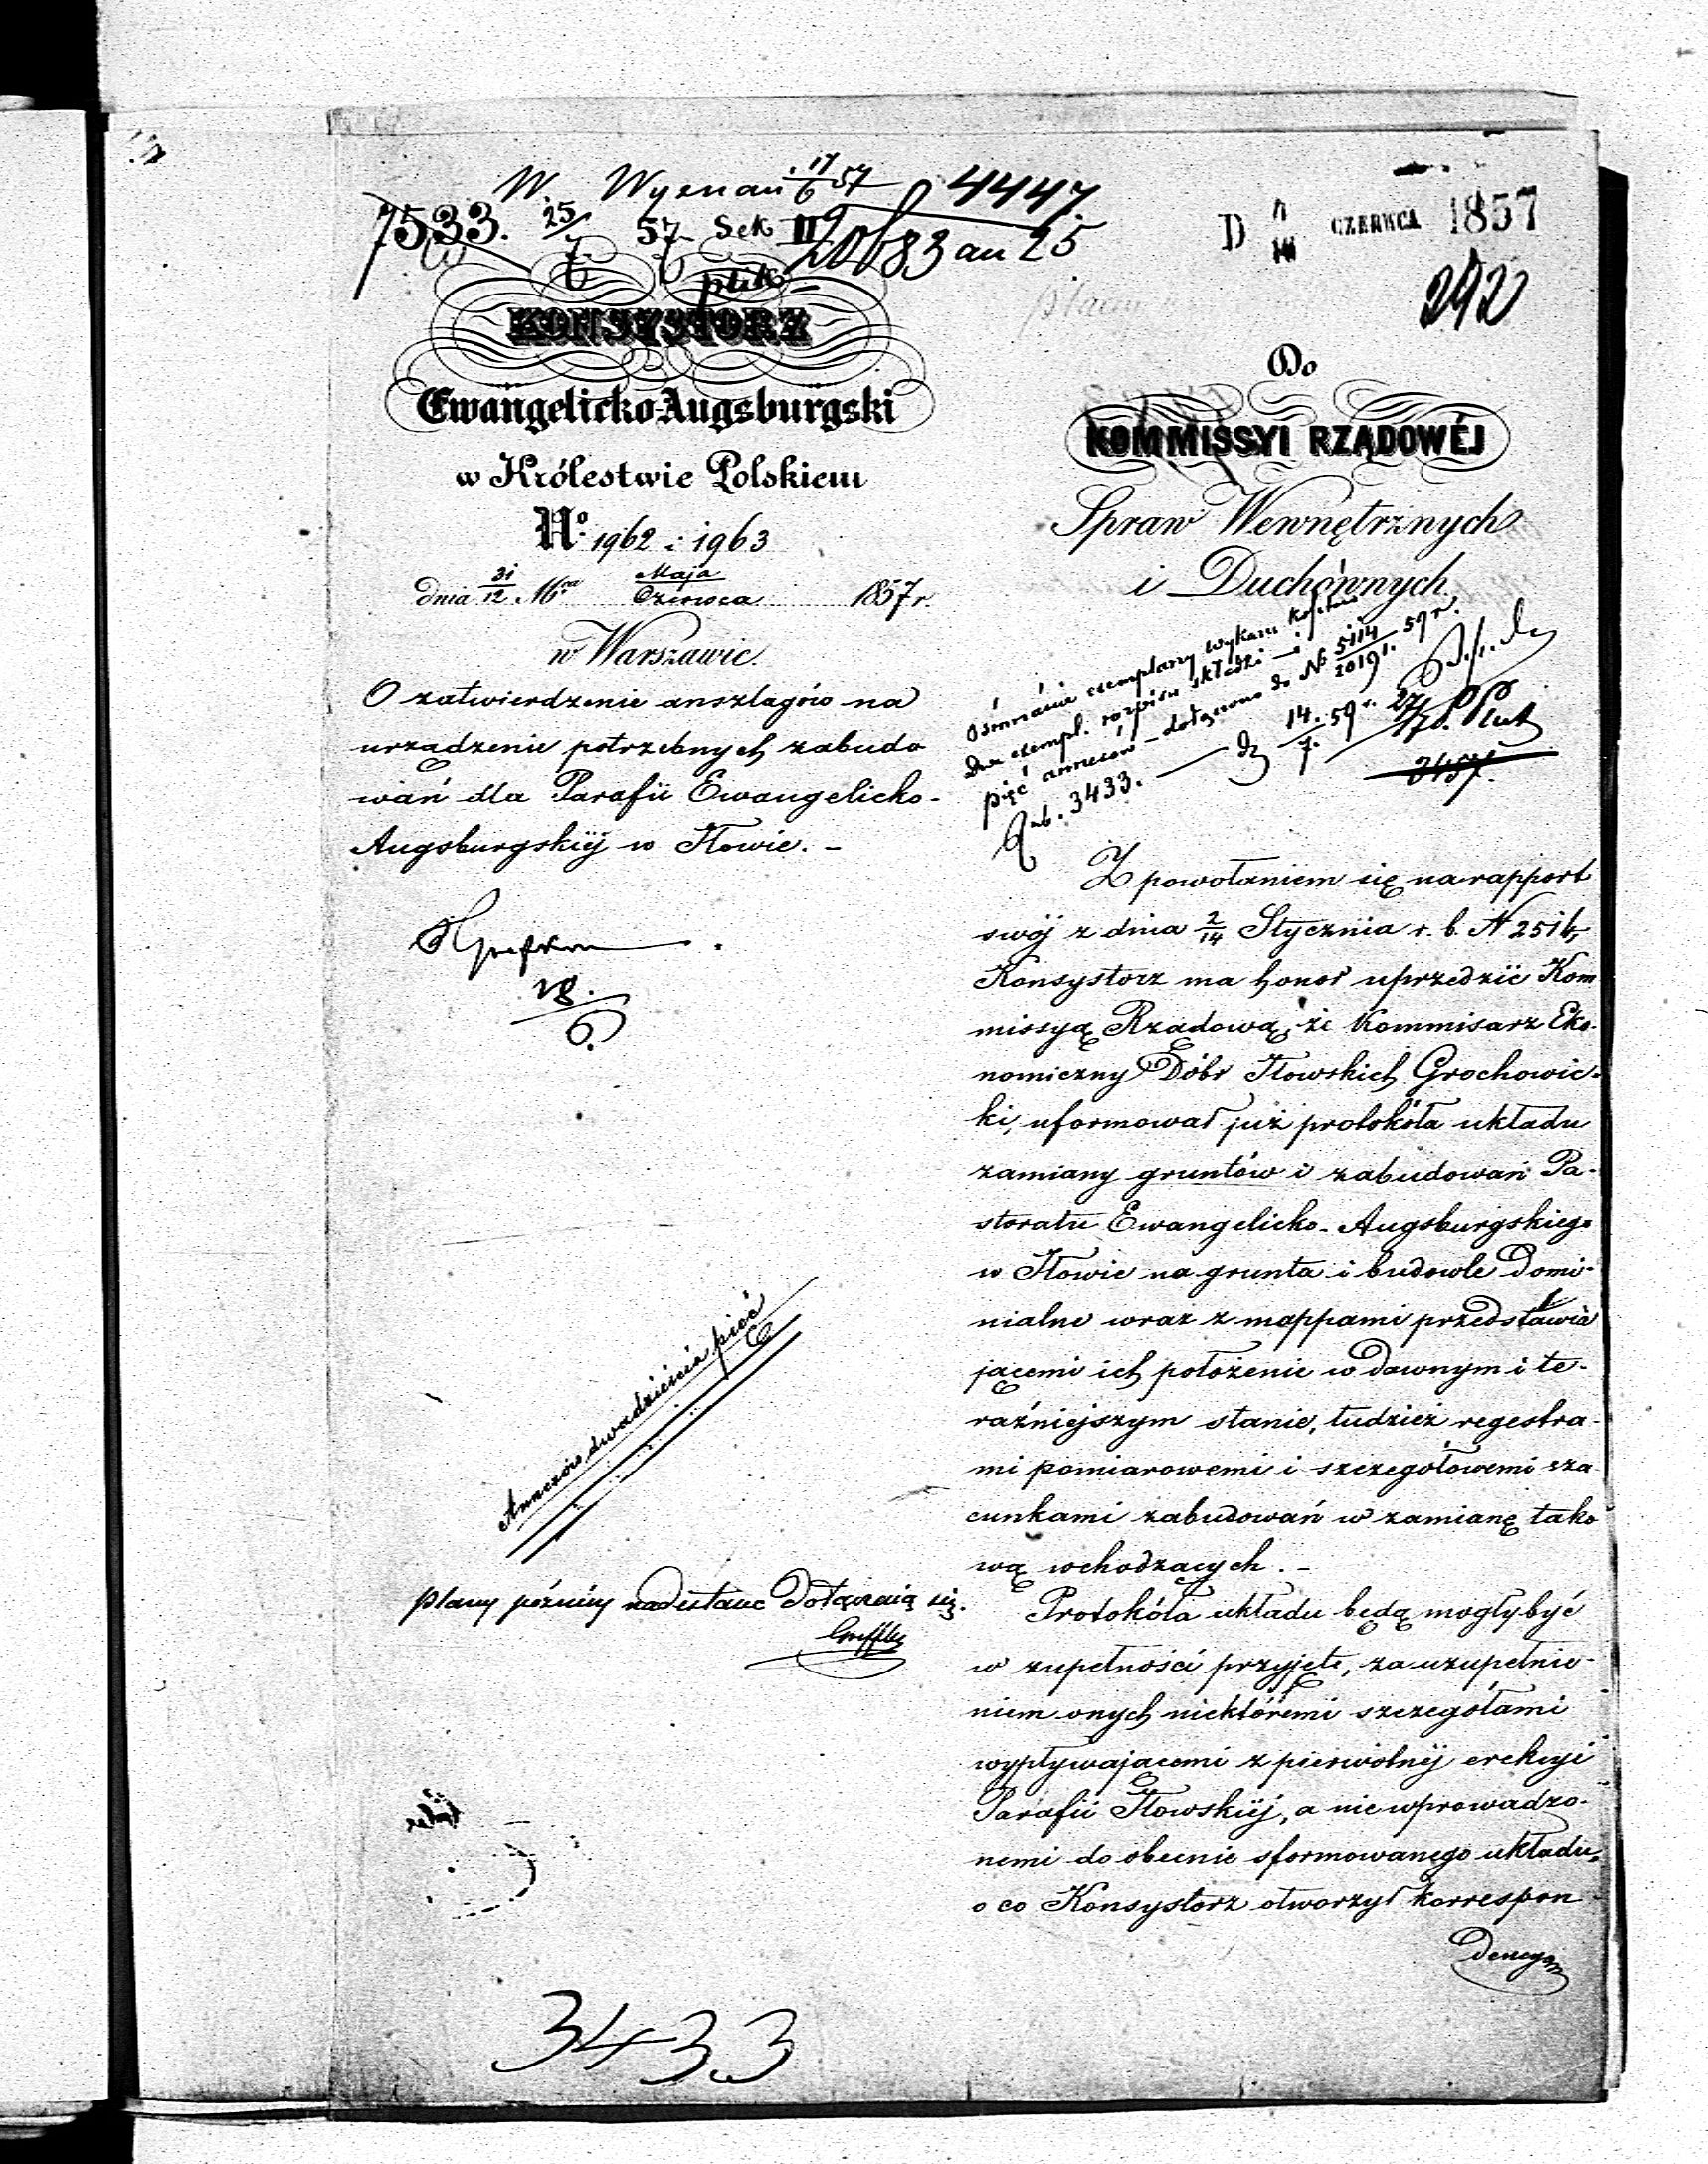 W. Wyznań 17/6 57
4447.
7533. 25/6 57 Sek II
20683 an 25
D CZERWCA 1857
292
KONSYSTORZ
Ewangelicko-Augsburgski
w Królestwie Polskiem
No. 1962 i 1963
dnia 31/12 Mca Maja/Czerwca 1857 r.
w Warszawie.
O zatwierdzenie anszlagów na
urządzenie potrzebnych zabudo
wań dla Parafii Ewangelicko-
Augsburgskiéj w Iłowie. -
18.
6.
Annexów dwadzieścia pięć
plany później nadesłane dołączają się.
3433
Do
KOMMISSYI RZĄDOWÉJ
Spraw Wewnętrznych
i Duchównych.
Ośmnaście exemplarzy wykazu
dwa exempl. rozpisu składki - i
pięć annexów - dołączono do No 5114/20191. 59 r.
3433. - 14./7. 59 r.
3457.
Z powołaniem się na rapport
swój z dnia 2/14 Stycznia r. b. N 2516,
Konsystorz ma honor uprzedzić Kom
missyą Rządową, że Kommisarz Eko-
nomiczny Dóbr Iłowskich Grochowic-
ki, uformował już protokóła układu
zamiany gruntów i zabudowań Pa-
storatu Ewangelicko-Augsburgskiego
w Iłowie na grunta i budowle Domi-
nialne wraz z mappami przedstawia
jącemi ich położenie w dawnym i te-
raźniejszym stanie, tudzież regestra-
mi pomiarowemi i szczegółowemi sza
cunkami zabudowań w zamianę tako
wą wchodzących. -
Protokóła układu będą mogły być
w zupełności przyjęte, za uzupełnie-
niem onych niektóremi szczegółami
wypływającemi z pierwotnéj erekcyi
Parafii Iłowskiéj, a nie wprowadzo-
nemi do obecnie sformowanego układu,
o co Konsystorz otworzył korrespon
dencyą